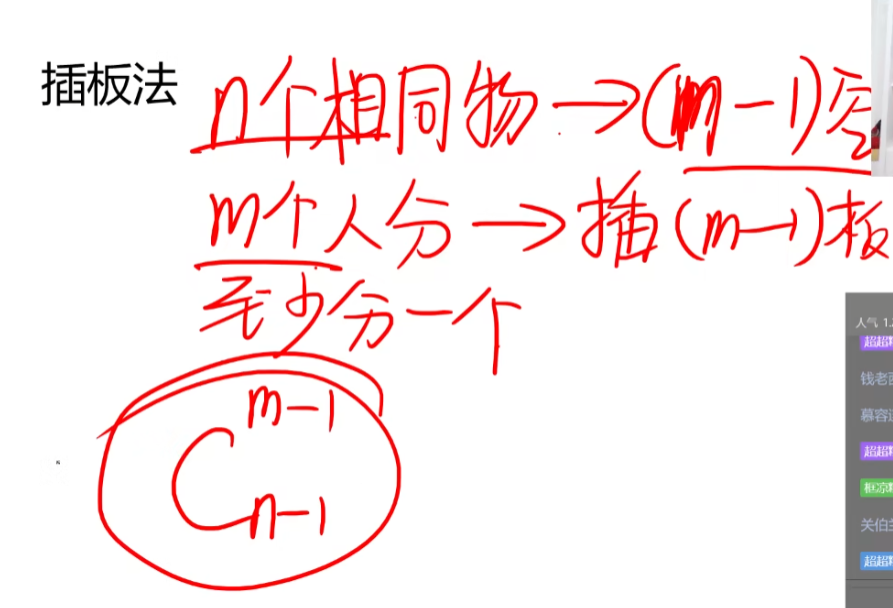 插板法
n个相同物→(m-1)空
m个人分→插(m-1)板
至少分一个
C
m-1
n-1
人气 1.
超超
钱老
慕容
超超
关伯
超超